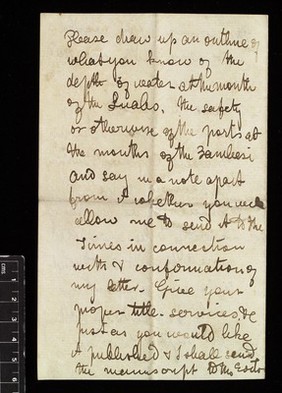 Please draw up an outline of
what you know of the
depth of water at the mouth
of the Luabo. The safety
or otherwise of the ports at
the mouths of the Zambesi
and say in a note apart
from it whether you will
allow me to send it to the
Times in connection
with & conformation of
my letter. Give your
proper title - services &c
just as you would like
it published & I shall send
the manuscript to the Editor